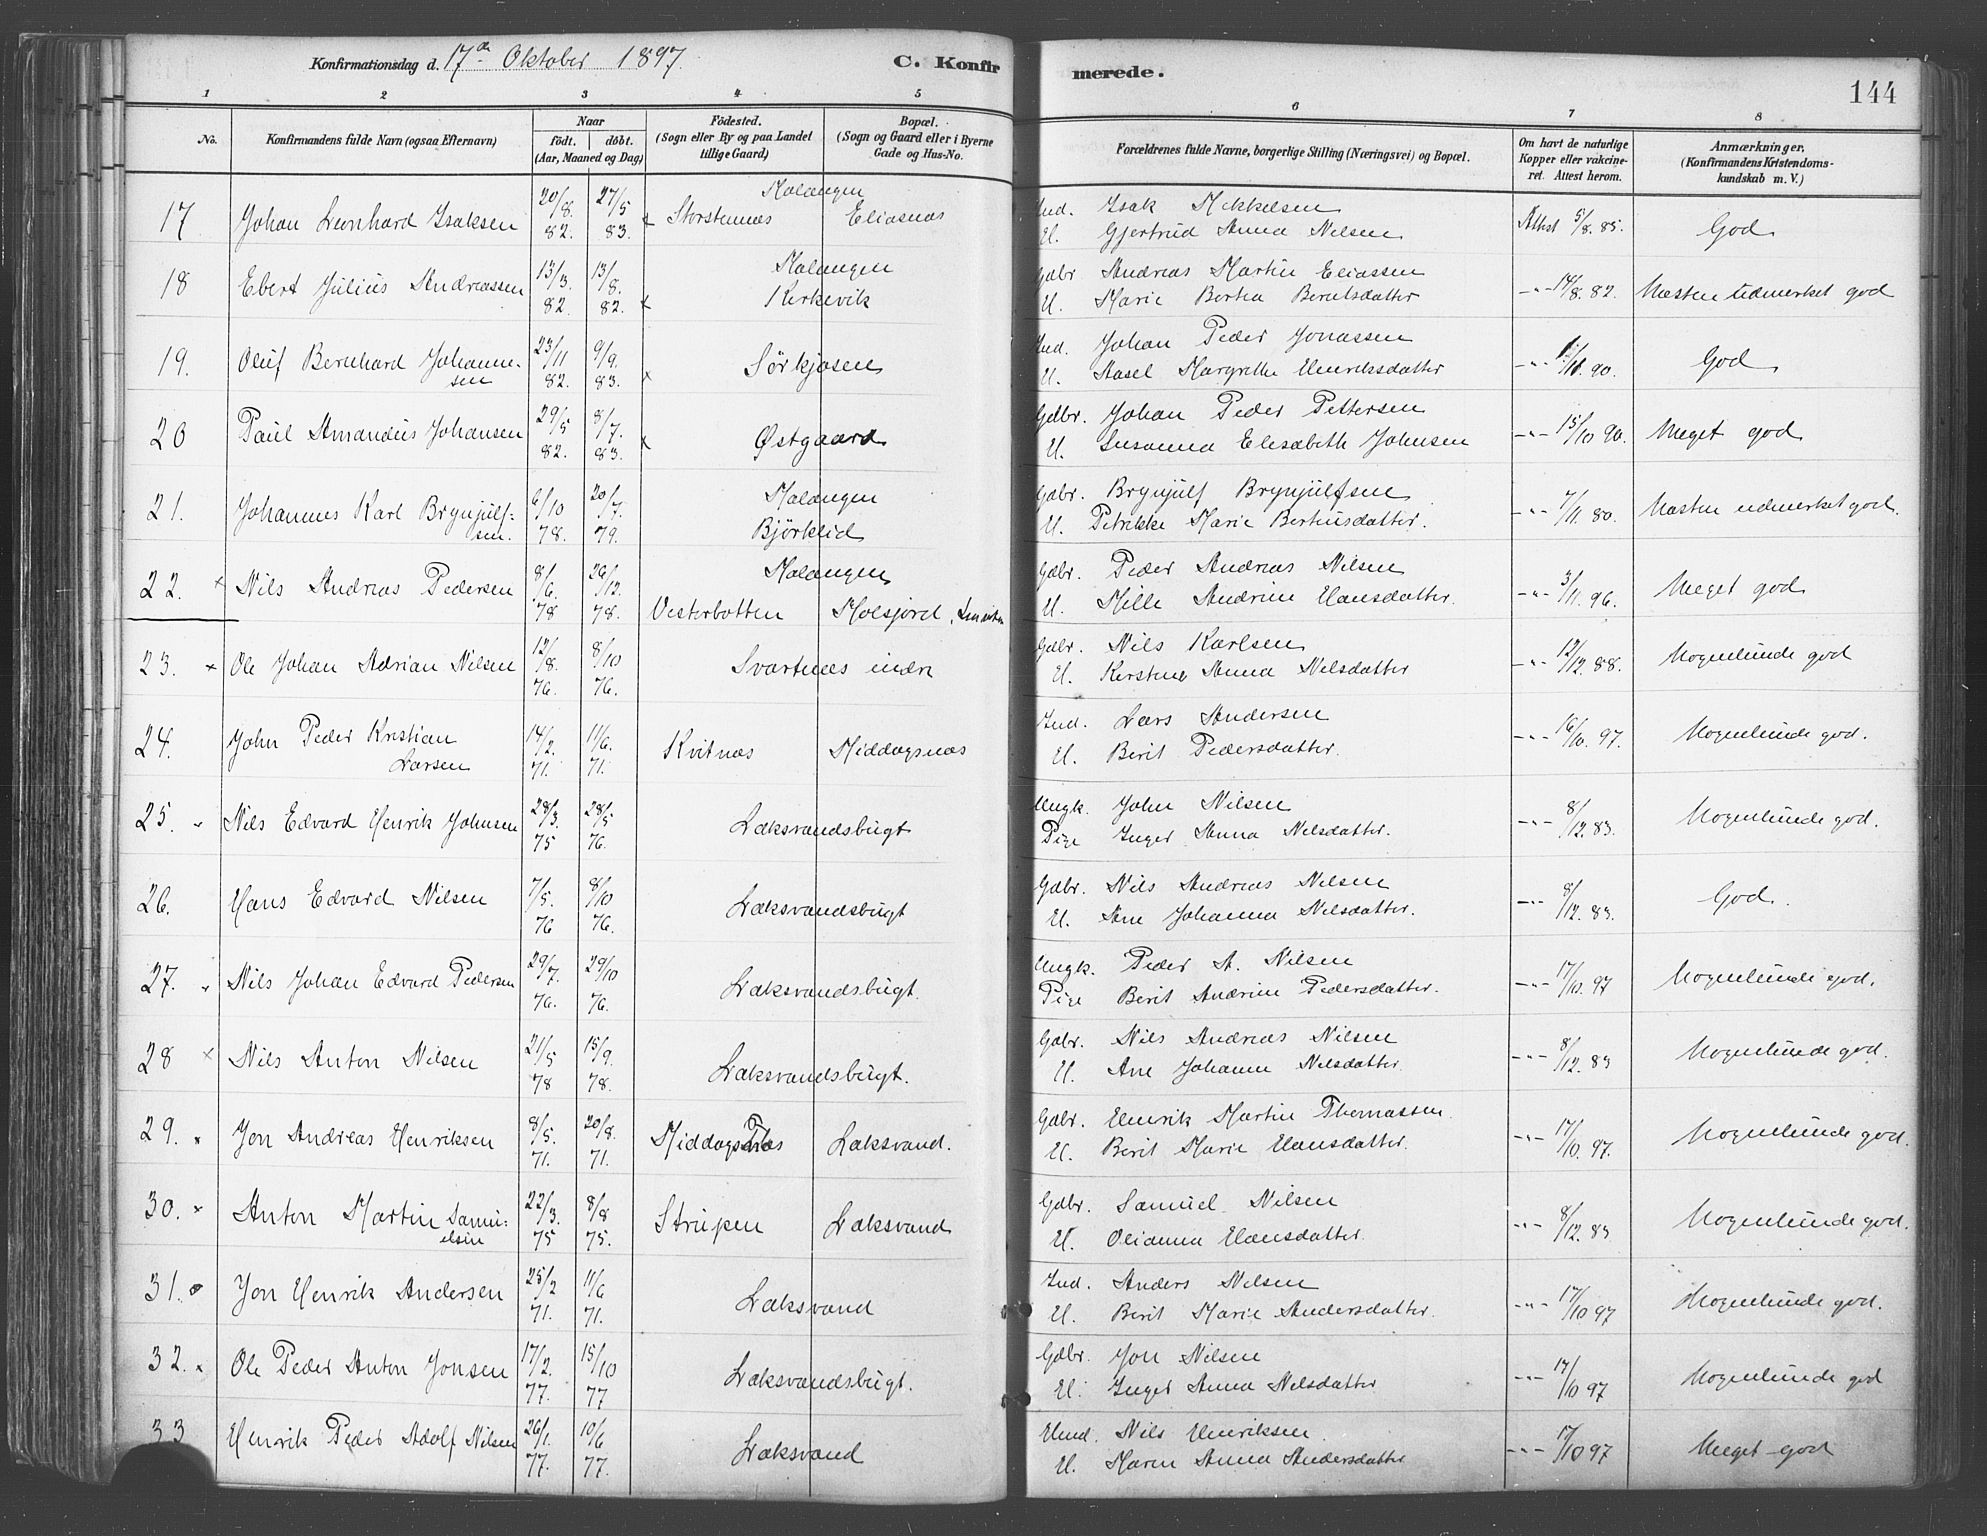 Konfirmationsdag d. 17de Oktober 1897.
C. Konfirmerede.
144
1 2 3 4 5 6 7 8
No. | Konfirmandens fulde Navn (ogsaa Efternavn) | Naar født. døbt. (Aar, Maaned og Dag) | Fødested. (Sogn eller By og paa Landet tillige Gaard) | Bopæl. (Sogn og Gaard eller i Byerne Gade og Hus-No. | Forældrenes fulde Navne, borgerlige Stilling (Næringsvei) og Bopæl. | Om havt de naturlige Kopper eller vakcineret. Attest herom. | Anmærkninger. (Konfirmandens Kristendomskundskab m. V.)
17 Johan Leonhard Isaksen 20/8. 82. 27/5 83. x Malangen Storstennæs Eliasnæs Ind. Isak Mikkelsen H. Gjertrud Anna Nilsen Attest 5/8. 85. God
18 Ebert Julius Andreassen 13/3 82. 13/8. 82. x Malangen Kirkevik Gdbr Andreas Martin Eliassen H. Marie Bertea Berntsdatter -"- 14/8. 82. Næsten udmerket god
19. Oluf Bernhard Johannesen 23/11 82. 9/9. 83. x Sørkjosen Ind. Johan Peder Jonassen H. Aasel Margrethe Henriksdatter -"- 90. God
20 Paul Amandus Johansen 29/5 82. 8/7. 83. x Østgaard Gdbr. Johan Peder Pettersen H. Susanna Elisabeth Johnsen -"- 15/10 90. Meget god
21. Johannes Karl Brynjulfsen. 6/10 78. 20/7. 79. Malangen Bjørklid Gdbr. Brynjulf Brynjulfsen H. Petrikke Marie Bertheusdatter. -"- 7/11. 80. Næsten udmerket god.
22. x Nils Andreas Pedersen 8/6. 78 26/12. 78. Malangen Vesterbotten Målsjord, Gdbr. Peder Andreas Nilsen H. Mille Andrine Hansdatter. -"- 3/11. 96. Meget god
23. x Ole Johan Adrian Nilsen 12/8. 76. 8/10 76. Svartnæs indre Gdbr. Nils Karlsen H. Kirstine Anna Nilsdatter -"- 12/12. 88. Nogenlunde god
24. John Peder Kristian Larsen 14/2. 71. 11/6. 71. Kvitnæs Middagsnæs Ind. Lars Andersen H. Berit Pedersdatter. -"- 16/10. 97. Nogenlunde god.
25. Nils Edvard Henrik Johnsen 28/3. 75 28/5 76. Laksvandsbugt Ungk. John Nilsen Pige Inger Anna Nilsdatter. -"- 8/12. 83. Nogenlunde god.
26. Hans Edvard Nilsen 7/5. 76 8/10 76. Laksvandsbugt Gdbr. Nils Andreas Nilsen H. Ane Johanna Nilsdatter. -"- 8/12. 83. God.
27. Nils Johan Edvard Pedersen 29/7. 76. 29/10 76. Laksvandsbugt. Ungk. Peder A. Nilsen Pige Berit Andrine Pedersdatter. -"- 17/10. 97 Nogenlunde god.
28 x Nils Anton Nilsen 21/5 78 15/9. 78. Laksvandsbugt. Gdbr. Nils Andreas Nilsen H. Ane Johanne Nilsdatter. -"- 8/12. 83 Nogenlunde god.
29. Jon Andreas Henriksen 8/5. 71. 20/8. 71. Middagsnæs Laksvand. Gdbr. Henrik Martin Thomassen H. Berit Marie Hansdatter. -"- 17/10. 97. Nogenlunde god.
30. x Anton Martin Samuelsen 22/3. 75 8/8 75. Strupen Laksvand Gdbr. Samuel Nilsen H. Olianna Hansdatter. -"- 8/12. 83 Nogenlunde god.
31. Jon Henrik Andersen 25/2 71. 11/6 71. Laksvand Ind. Anders Nilsen H. Berit Marie Andersdatter. -"- 17/10 97 Nogenlunde god.
32. x Ole Peder Anton Jonsen 17/2. 77. 15/10 77 Laksvandsbugt. Gdbr. Jon Nilsen H. Inger Anna Nilsdatter -"- 17/10 97 Nogenlunde god
33 Henrik Peder Adolf Nilsen 26/1. 77. 10/6 77. Laksvand Nils Henriksen. H. Maren Anna Andersdatter -"- 17/10 97 Meget god